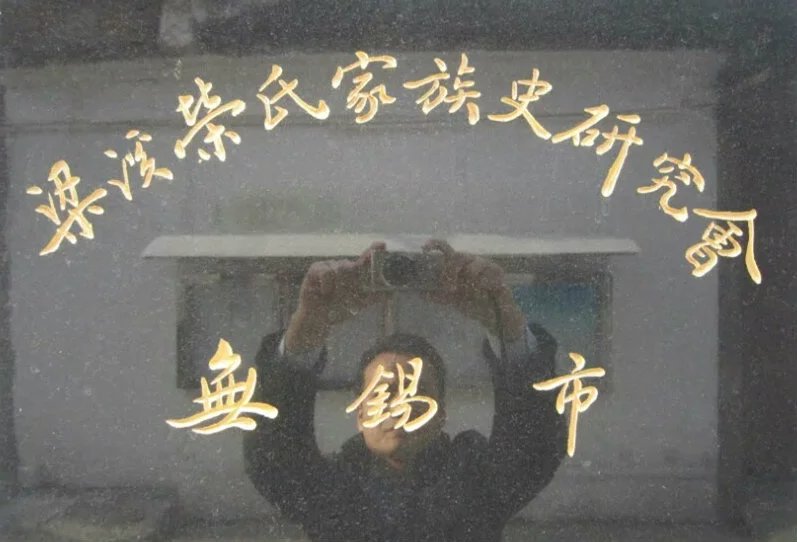 梁溪荣氏家族史研究會
無錫市